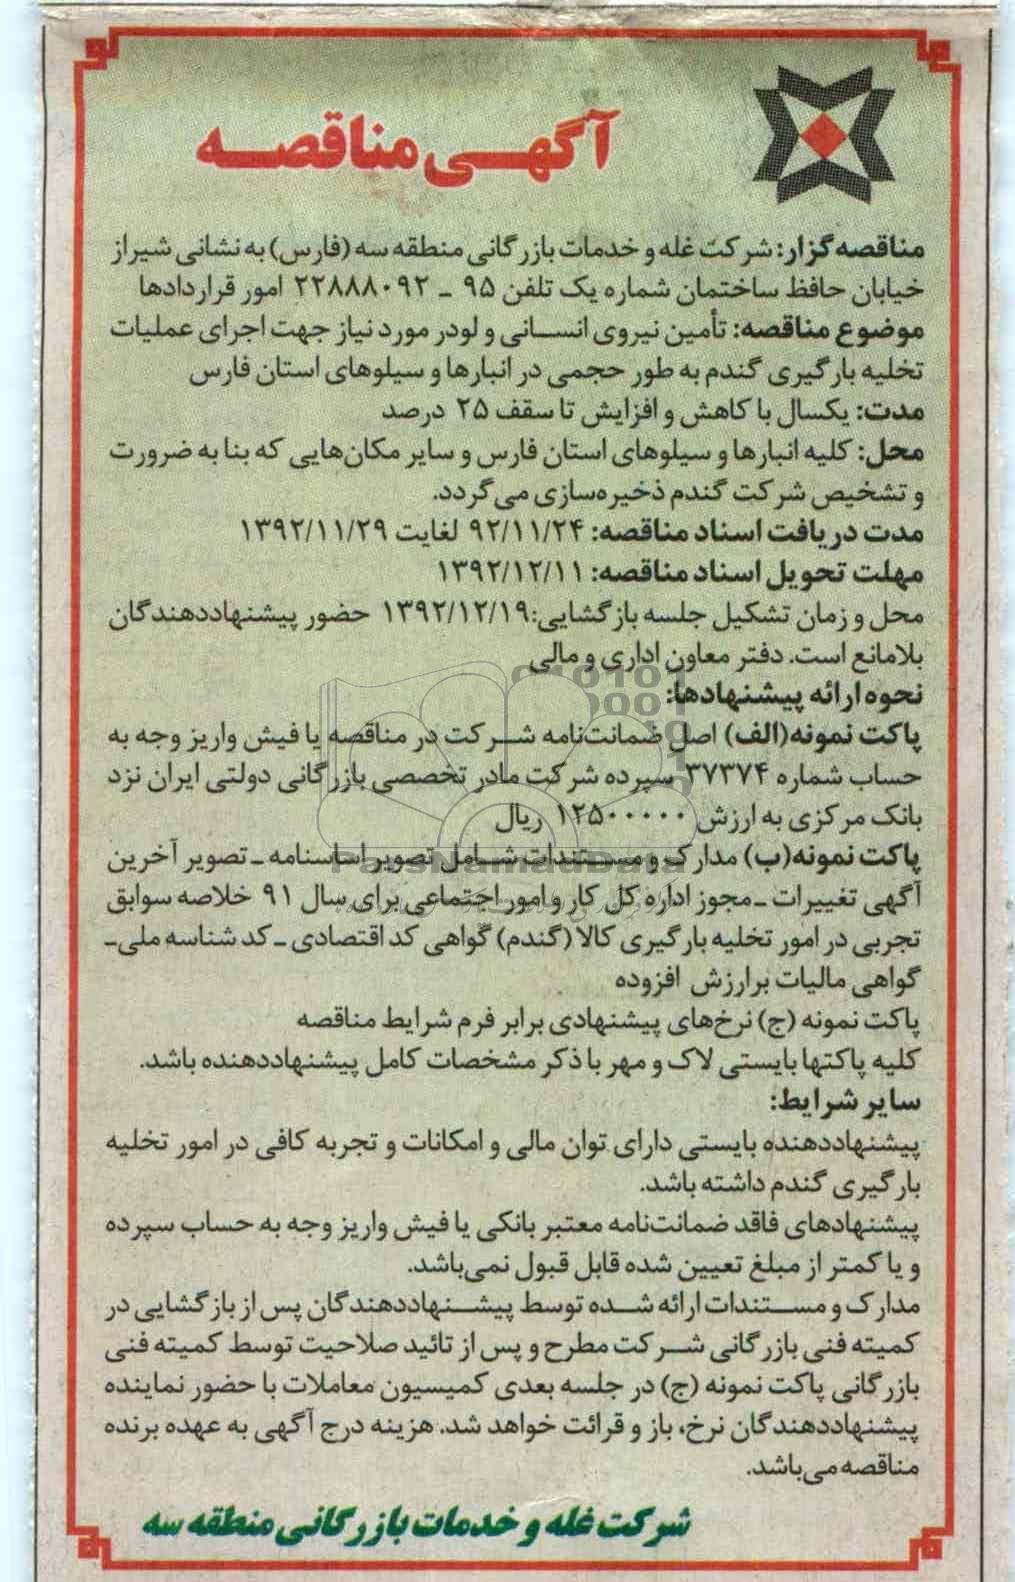 آگهی مناقصه
مناقصه گزار: شرکت غله و خدمات بازرگانی منطقه سه (فارس) به نشانی شیراز
خیابان حافظ ساختمان شماره یک تلفن ۹۵ ـ ۲۲۸۸۸۰۹۲ امور قراردادها
موضوع مناقصه: تأمین نیروی انسانی و لودر مورد نیاز جهت اجرای عملیات
تخلیه بارگیری گندم به طور حجمی در انبارها و سیلوهای استان فارس
مدت: یکسال با کاهش و افزایش تا سقف ۲۵ درصد
محل: کلیه انبارها و سیلوهای استان فارس و سایر مکان‌هایی که بنا به ضرورت
و تشخیص شرکت گندم ذخیره‌سازی می‌گردد.
مدت دریافت اسناد مناقصه: ۹۲/۱۱/۲۴ لغایت ۱۳۹۲/۱۱/۲۹
مهلت تحویل اسناد مناقصه: ۱۳۹۲/۱۲/۱۱
محل و زمان تشکیل جلسه بازگشایی: ۱۳۹۲/۱۲/۱۹ حضور پیشنهاددهندگان
بلامانع است. دفتر معاون اداری و مالی
نحوه ارائه پیشنهادها:
پاکت نمونه(الف) اصل ضمانت‌نامه شرکت در مناقصه یا فیش واریز وجه به
حساب شماره ۳۷۳۷۴ سپرده شرکت مادر تخصصی بازرگانی دولتی ایران نزد
بانک مرکزی به ارزش ۱۲۵۰۰۰۰۰ ریال
پاکت نمونه(ب) مدارک و مستندات شامل تصویر اساسنامه ـ تصویر آخرین
آگهی تغییرات ـ مجوز اداره کل کار و امور اجتماعی برای سال ۹۱ خلاصه سوابق
تجربی در امور تخلیه بارگیری کالا (گندم) گواهی کد اقتصادی ـ کد شناسه ملی-
گواهی مالیات برارزش افزوده
پاکت نمونه (ج) نرخ‌های پیشنهادی برابر فرم شرایط مناقصه
کلیه پاکتها بایستی لاک و مهر با ذکر مشخصات کامل پیشنهاددهنده باشد.
سایر شرایط:
پیشنهاددهنده بایستی دارای توان مالی و امکانات و تجربه کافی در امور تخلیه
بارگیری گندم داشته باشد.
پیشنهادهای فاقد ضمانت‌نامه معتبر بانکی یا فیش واریز وجه به حساب سپرده
و یا کمتر از مبلغ تعیین شده قابل قبول نمی‌باشد.
مدارک و مستندات ارائه شده توسط پیشنهاددهندگان پس از بازگشایی در
کمیته فنی بازرگانی شرکت مطرح و پس از تائید صلاحیت توسط کمیته فنی
بازرگانی پاکت نمونه (ج) در جلسه بعدی کمیسیون معاملات با حضور نماینده
پیشنهاددهندگان نرخ، باز و قرائت خواهد شد. هزینه درج آگهی به عهده برنده
مناقصه می‌باشد.
شرکت غله و خدمات بازرگانی منطقه سه
ParsNamadData